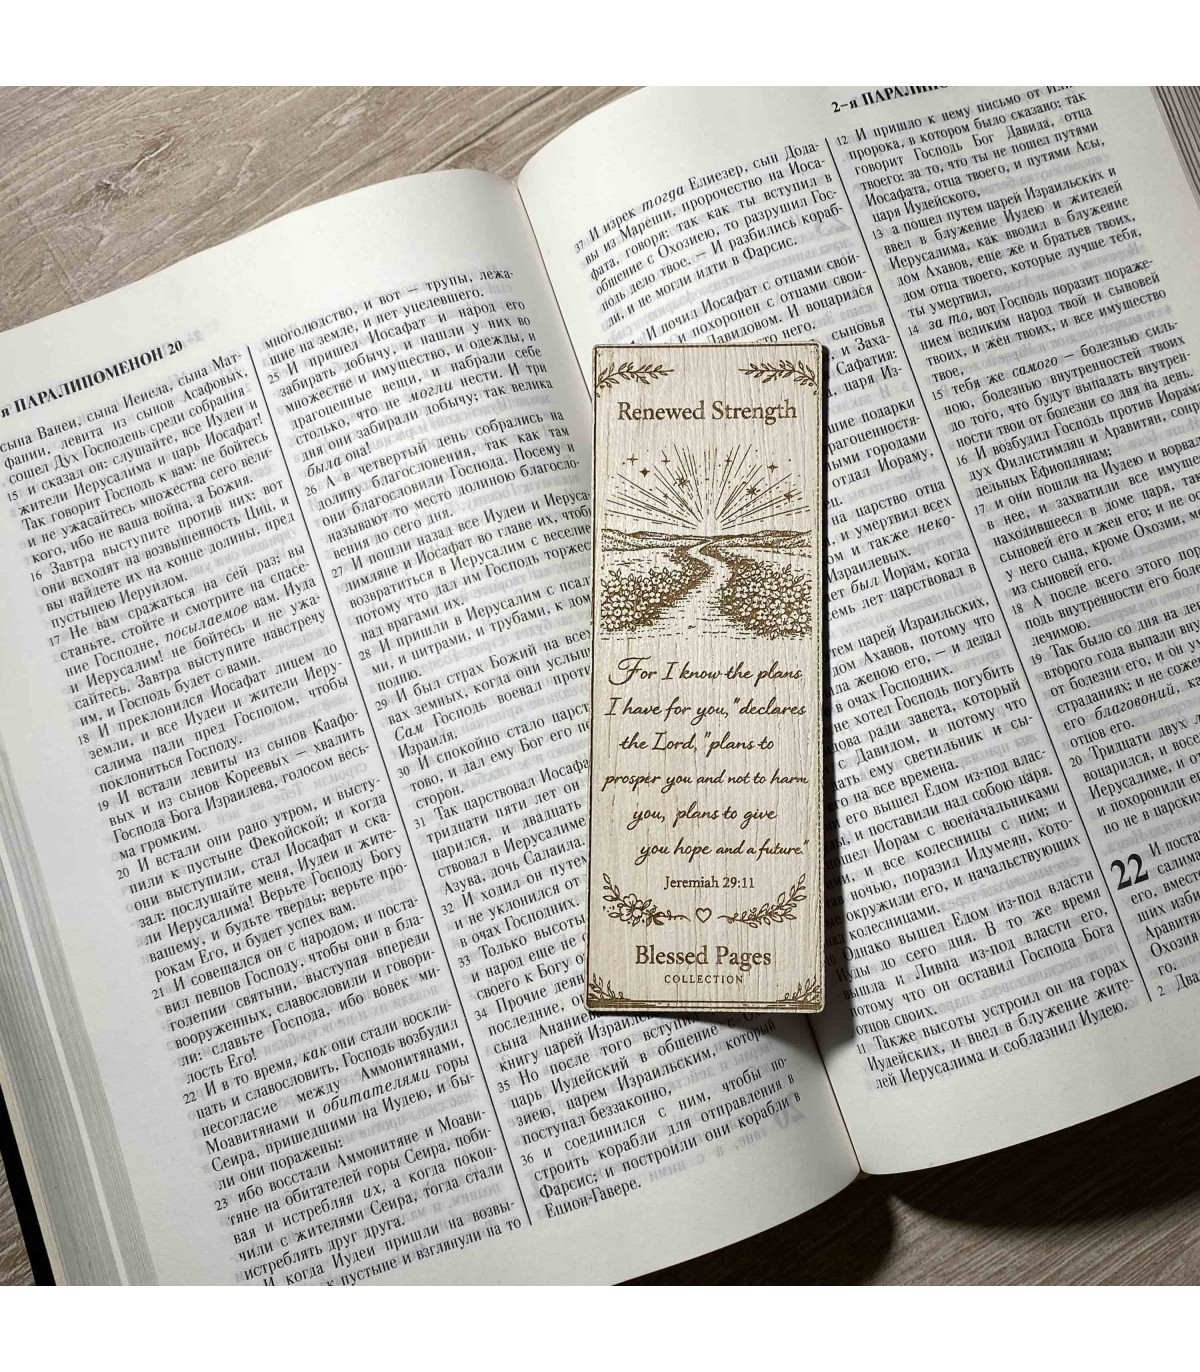 я ПАРАЛИПОМЕНОН 20
сына Ванеи, сына Иеиела, сына Мат-
фании, левита из сынов Асафовых,
сошел Дух Господень среди собрания
15 и сказал он: слушайте, все Иудеи и
жители Иерусалима и царь Иосафат!
Так говорит Господь к вам: не бойтесь
и не ужасайтесь множества сего вели-
кого, ибо не ваша война, а Божия.
16 Завтра выступите против них: вот
они всходят на возвышенность Циц, и
вы найдете их на конце долины, пред
пустынею Иеруилом.
17 Не вам сражаться на сей раз; вы
станьте, стойте и смотрите на спасе-
ние Господне, посылаемое вам. Иуда
и Иерусалим! не бойтесь и не ужа-
сайтесь. Завтра выступите навстречу
им, и Господь будет с вами.
18 И преклонился Иосафат лицем до
земли, и все Иудеи и жители Иеру-
салима пали пред Господом, чтобы
поклониться Господу.
19 И встали левиты из сынов Каафо-
вых и из сынов Кореевых — хвалить
Господа Бога Израилева, голосом весь-
ма громким.
20 И встали они рано утром, и высту-
пили к пустыне Фекойской; и когда
они выступили, стал Иосафат и ска-
зал: послушайте меня, Иудеи и жите-
ли Иерусалима! Верьте Господу Богу
вашему, и будьте тверды; верьте про-
рокам Его, и будет успех вам.
21 И совещался он с народом, и поста-
вил певцов Господу, чтобы они в бла-
голепии святыни, выступая впереди
вооруженных, славословили и говори-
ли: славьте Господа, ибо вовек ми-
лость Его!
22 И в то время, как они стали воскли-
цать и славословить, Господь возбудил
несогласие между Аммонитянами,
Моавитянами и обитателями горы
Сеира, пришедшими на Иудею, и бы-
ли они поражены:
23 ибо восстали Аммонитяне и Моави-
тяне на обитателей горы Сеира, поби-
вая и истребляя их, а когда покон-
чили с жителями Сеира, тогда стали
истреблять друг друга.
И когда Иудеи пришли на возвы-
к пустыне и взглянули на то
многолюдство, и вот — трупы, лежа-
щие на земле, и нет уцелевшего.
25 И пришел Иосафат и народ его
забирать добычу, и нашли у них во
множестве и имущество, и одежды, и
драгоценные вещи, и набрали себе
столько, что не могли нести. И три
дня они забирали добычу; так велика
была она!
26 А в четвертый день собрались на
долину благословения, так как там
они благословили Господа. Посему и
называют то место долиною благосло-
вения до сего дня.
27 И пошли назад все Иудеи и Иеруса-
лимляне и Иосафат во главе их, чтобы
возвратиться в Иерусалим с веселие
потому что дал им Господь торжес
над врагами их.
28 И пришли в Иерусалим с псал
ми, и цитрами, и трубами, к дом
подню.
29 И был страх Божий на всех
вах земных, когда они услыш
Сам Господь воевал проти
Израиля.
30 И спокойно стало царст
тово, и дал ему Бог его по
сторон.
31 Так царствовал Иосафа
тридцати пяти лет он
царился, и двадцать
ствовал в Иерусалиме
Азува, дочь Салаила.
32 И ходил он путем
и не уклонился от
в очах Господних.
33 Только высоты
и народ еще не о
своего к Богу о
34 Прочие деян
последние, о
сына Анание
книгу царей Израильс
35 Но после того вступи
царь Иудейский в общение с О
зиею, царем Израильским, который
поступал беззаконно,
36 и соединился с ним, чтобы по-
строить корабли для отправления в
Фарсис; и построили они корабли в
Ецион-Гавере.
2-я ПАРАЛИПО
37 И изрек тогда Елиезер, сын Дода-
вы из Мареши, пророчество на Иоса-
фата, говоря: так как ты вступил в
общение с Охозиею, то разрушил Гос-
подь дело твое. — И разбились кораб-
ли, и не могли идти в Фарсис.
И почил Иосафат с отцами свои-
и похоронен с отцами свои-
Давидовом. И воцарился
сто него.
сыновья
и Заха-
Сафатия:
царя Из-
подарки
драгоценностя-
ными городами
отдал Иораму,
на царство отца
и умертвил всех
также неко-
Израилевых.
лет был Иорам, когда
семь лет царствовал в
тем царей Израильских,
дом Ахавов, потому что
была женою его, — и делал
в очах Господних.
не хотел Господь погубить
дова ради завета, который
с Давидом, и потому что
дать ему светильник и сы-
его на все времена.
его вышел Едом из-под влас-
и поставили над собою царя.
пошел Иорам с военачальниками
и все колесницы с ним; и
ночью, поразил Идумеян, кото-
окружили его, и начальствующих
колесницами.
Однако вышел Едом из-под власти
Иуды до сего дня. В то же время
вышла и Ливна из-под власти его,
потому что он оставил Господа Бога
отцов своих.
11 Также высоты устроил он на горах
Иудейских, и ввел в блужение жите-
лей Иерусалима и соблазнил Иудею.
12 И пришло к нему письмо от Или
пророка, в котором было сказано: так
говорит Господь Бог Давида, отца
твоего: за то, что ты не пошел путями
Иосафата, отца твоего, и путями Асы,
царя Иудейского,
13 а пошел путем царей Израильских и
ввел в блужение Иудею и жителей
Иерусалима, как вводил в блужение
дом Ахавов, еще же и братьев твоих,
дом отца твоего, которые лучше тебя,
ты умертвил,
14 за то, вот Господь поразит пораже-
нием великим народ твой и сыновей
твоих, и жен твоих, и все имущество
твое,
15 тебя же самого — болезнью силь-
ною, болезнью внутренностей твоих
до того, что будут выпадать внутрен-
ности твои от болезни со дня на день.
16 И возбудил Господь против Иорам
дух Филистимлян и Аравитян, сопре
дельных Ефиоплянам;
17 и они пошли на Иудею и ворва
в нее, и захватили все имуще
находившееся в доме царя, так
сыновей его и жен его; и не ос
у него сына, кроме Охозии, м
из сыновей его.
18 А после всего этого пор
подь внутренности его боле
лечимою.
19 Так было со дня на де
второго года выпали вну
от болезни его, и он ум
страданиях; и не сожё
его благовоний, как
отцов его.
20 Тридцати двух л
воцарился, и восе
Иерусалиме, и о
и похоронили е
но не в царски
22 И поста
салима
его, вместо
ших изби
Аравитян
Охозия
го.
2 Два
Renewed Strength
For I know the plans
I have for you," declares
the Lord, "plans to
prosper you and not to harm
you, plans to give
you hope and a future."
Jeremiah 29:11
Blessed Pages
COLLECTION